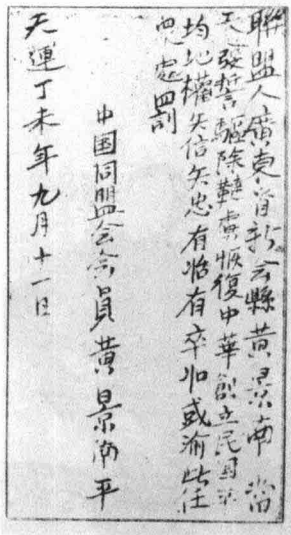 聯盟人廣東省新会縣黃景南當
天發誓驅除韃虜恢復中華創立民国平
均地權矢信矢忠有始有卒如或渝此任
處罰
中国同盟会会員黃景南平
天運丁未年九月十一日